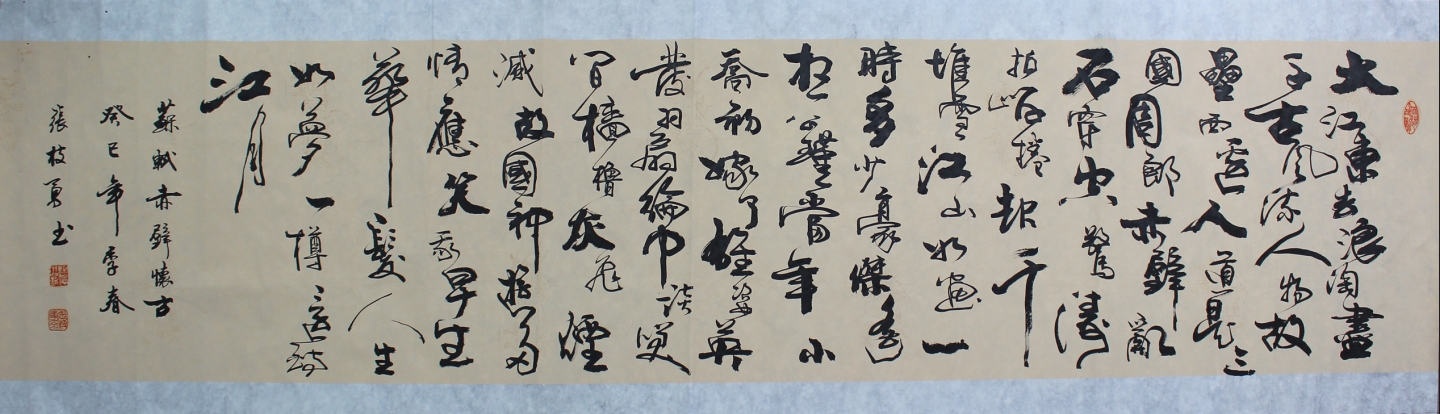 大江東去浪淘盡
千古風流人物故
壘西邊人道是三
國周郎赤壁亂
石穿空驚濤
拍岸捲起千
堆雪江山如畫一
時多少豪傑遙
想公瑾當年小
喬初嫁了雄姿英
發羽扇綸巾談笑
間檣櫓灰飛煙
滅故國神遊多
情應笑我早生
華髮人生
如夢一樽還酹
江月
蘇軾赤壁懷古
癸巳年季春
張枝勇书